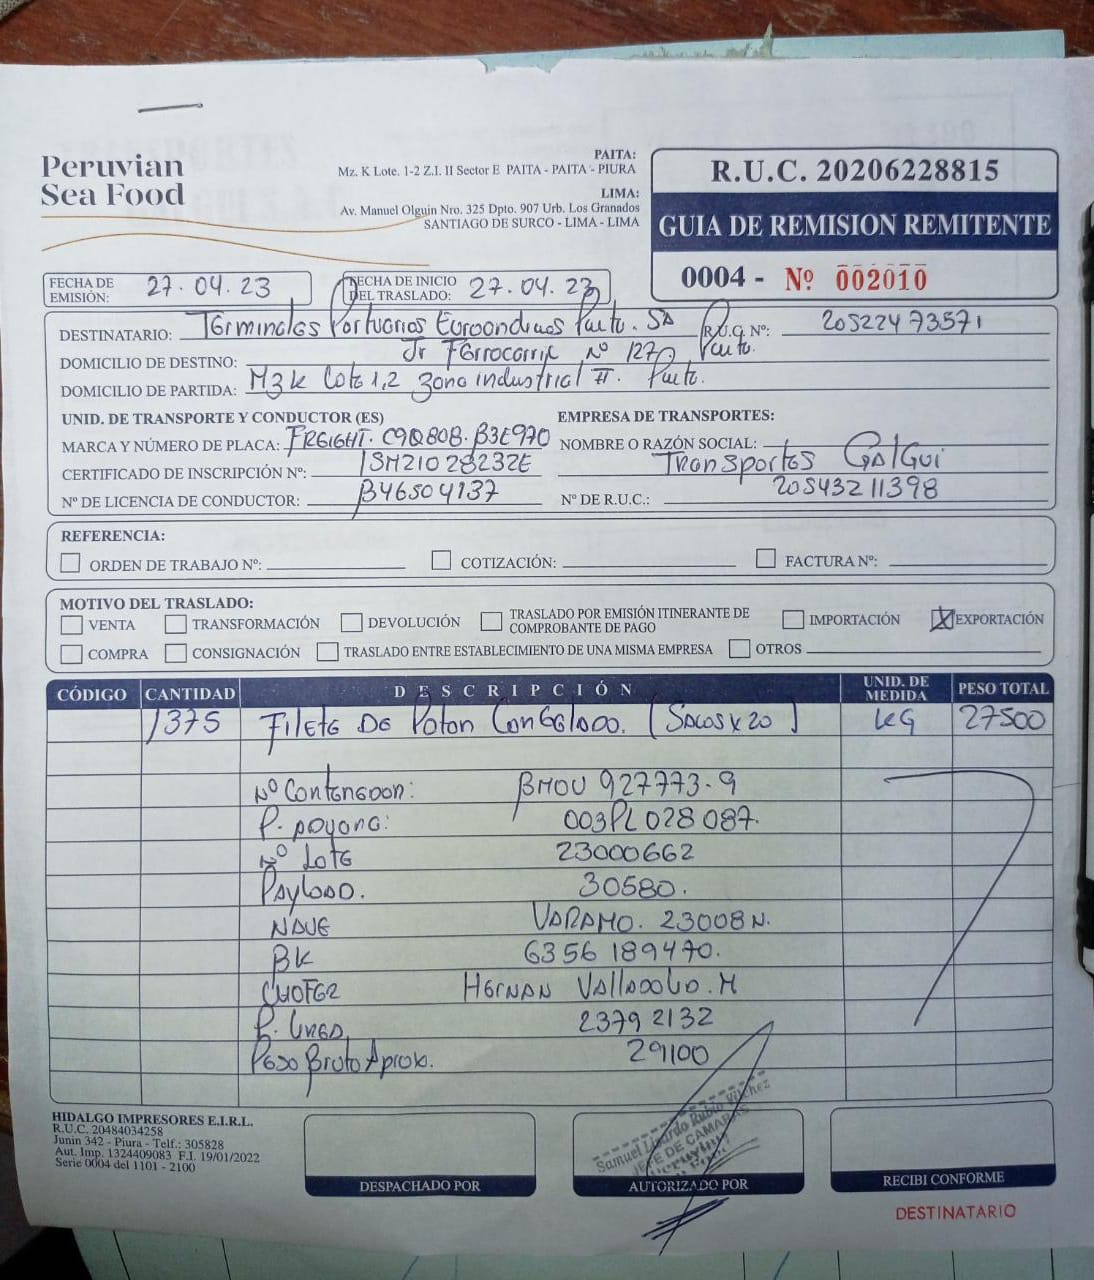 Peruvian
Sea Food
PAITA:
Mz. K Lote. 1-2 Z.I. II Sector E PAITA - PAITA - PIURA
LIMA:
Av. Manuel Olguin Nro. 325 Dpto. 907 Urb. Los Granados
SANTIAGO DE SURCO - LIMA - LIMA
R.U.C. 20206228815
GUIA DE REMISION REMITENTE
0004 - Nº 002010
FECHA DE EMISIÓN: 27.04.23
FECHA DE INICIO DEL TRASLADO: 27.04.23
DESTINATARIO: Terminales Portuarios Euroandinos Paita. SA R.U.C. Nº: 20522473571
DOMICILIO DE DESTINO: Jr Ferrocarril Nº 127, Paita.
DOMICILIO DE PARTIDA: Mz K Lote 1,2 Zona industrial II. Paita.
UNID. DE TRANSPORTE Y CONDUCTOR (ES)
MARCA Y NÚMERO DE PLACA: FREIGHT. C9Q808. B3E970
CERTIFICADO DE INSCRIPCIÓN Nº: 15M21028232E
Nº DE LICENCIA DE CONDUCTOR: B46504137
EMPRESA DE TRANSPORTES:
NOMBRE O RAZÓN SOCIAL: Transportes GalGui
Nº DE R.U.C.: 20543211398
REFERENCIA:
ORDEN DE TRABAJO Nº: COTIZACIÓN: FACTURA Nº:
MOTIVO DEL TRASLADO:
VENTA TRANSFORMACIÓN DEVOLUCIÓN TRASLADO POR EMISIÓN ITINERANTE DE COMPROBANTE DE PAGO IMPORTACIÓN X EXPORTACIÓN
COMPRA CONSIGNACIÓN TRASLADO ENTRE ESTABLECIMIENTO DE UNA MISMA EMPRESA OTROS
CÓDIGO CANTIDAD DESCRIPCIÓN UNID. DE MEDIDA PESO TOTAL
1375 Filete De Poton Congelado. (Sacos x 20) KG 27500
Nº Contenedor: BMOU 927773-9
P. Aduana: 003PL028087.
Nº Lote 23000662
Payload. 30580.
NAVE VARAMO. 23008N.
BK 6356189470.
CHOFER Hernan Valladolid. M
P. Linea 23792132
Peso Bruto Aprox. 29100
HIDALGO IMPRESORES E.I.R.L.
R.U.C. 20484034258
Junin 342 - Piura - Telf.: 305828
Aut. Imp. 1324409083 F.I. 19/01/2022
Serie 0004 del 1101 - 2100
Samuel Lizardo Rubio Vilchez
JEFE DE CAMARAS
DESPACHADO POR
AUTORIZADO POR
RECIBI CONFORME
DESTINATARIO